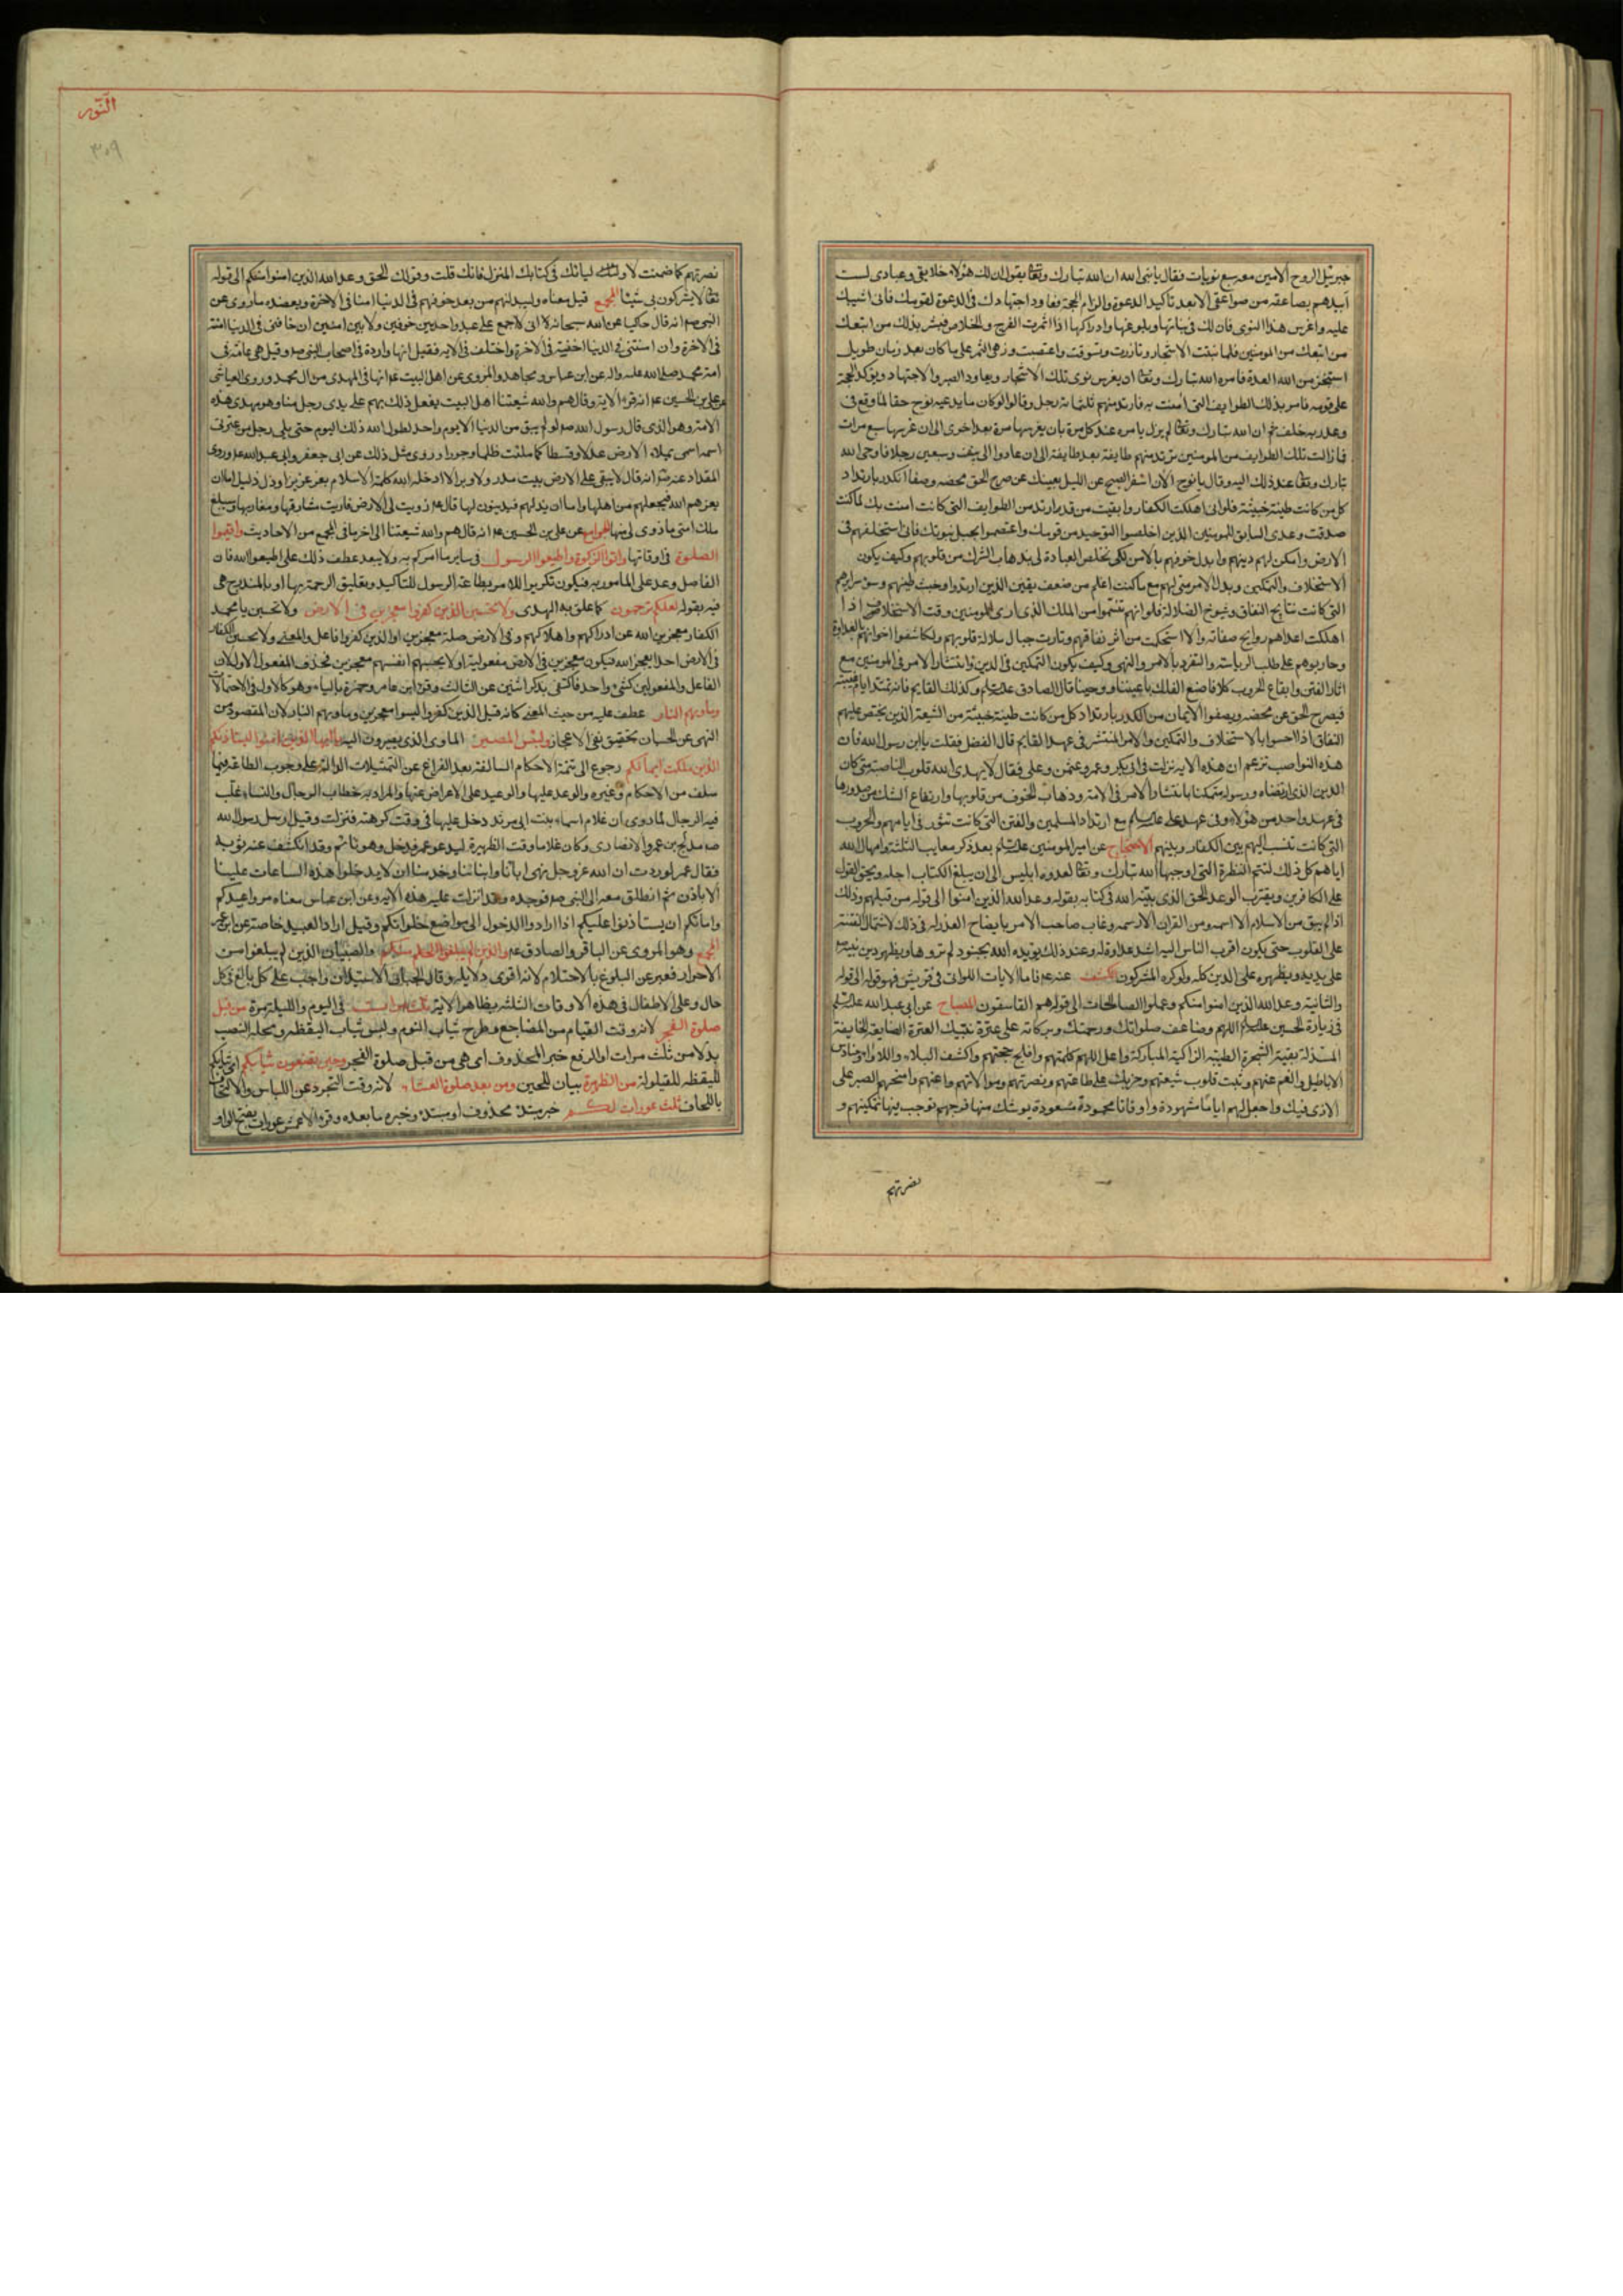 جبرئيل الروح الامين معه سبع نويات فقال يا نبى الله ان الله تبارك وتعا يقول لك ان هؤلاء خلايقى وعبادى لست
ابيدهم بصاعقة من صواعقى الا بعد تأكيد الدعوة والزام الحجة فعاود اجتهادك فى الدعوة لقومك فانى اثيبك
عليه واغرس هذا النوى فان لك فى نباتها وبلوغها وادراكها اذا اثمرت الفرج والخلاص فبشر بذلك من اتبعك
من اتبعك من المومنين فلما نبتت الاشجار وتازرت وتسوقت واغصنت وزهى الثمر على ما كان بعد زمان طويل
استنجز من الله العدة فامره الله تبارك وتعا ان يغرس نوى تلك الاشجار ويعاود الصبر والاجتهاد ويوكد الحجة
على قومه فامر بذلك الطوايف التى امنت به فارتد منهم ثلثمائة رجل وقالوا لو كان ما يدعيه نوح حقا لما وقع فى
وعد ربه خلف ثم ان الله تبارك وتعا لم يزل يامره عند كل مرة بان يغرسها مرة بعد اخرى الى ان غرسها سبع مرات
فما زالت تلك الطوايف من المومنين يرتد منهم طايفة بعد طايفة الى ان عادوا الى نيف وسبعين رجلا فاوحى الله
تبارك وتعا عند ذلك اليه وقال يا نوح الان اسفر الصبح عن الليل بعينك عن صرح الحق محضه وصفا الكدر بارتداد
كل من كانت طينته خبيثة فلو انى اهلكت الكفار وابقيت من قد ارتد من الطوايف التى كانت امنت بك لما كنت
صدقت وعدى السابق للمومنين الذين اخلصوا التوحيد من قومك واعتصموا بحبل نبوتك فانى استخلفهم فى
الارض وامكن لهم دينهم وابدل خوفهم بالامن لكى تخلص العبادة لى بذهاب الشرك من قلوبهم وكيف يكون
الاستخلاف والتمكين وبدل الامن منى لهم مع ما كنت اعلم من ضعف يقين الذين ارتدوا وخبث طينهم وسوء سرايرهم
التى كانت نتايج النفاق وشيوخ الضلالة فلو انهم تنسموا من الملك الذى ارى المومنين وقت الاستخلاف اذا
اهلكت اعداهم روايح صفاته ولاستحكمت مراير نفاقهم وثارت خبال ضلالة قلوبهم ولكاشفوا اخوانهم بالعداوة
وحاربوهم على طلب الرياسة والتفرد بالامر والنهى وكيف يكون التمكين فى الدين وانتشار الامر فى المومنين مع
اثار الفتن وايقاع الحروب كلا فاصنع الفلك باعيننا ووحينا قال الصادق عليه السلام وكذلك القايم فانه تمتد ايام غيبته
فيصرح الحق عن محضه ويصفوا الايمان من الكدر بارتداد كل من كانت طينته خبيثة من الشيعة الذين يخشى عليهم
النفاق اذا احسوا بالاستخلاف والتمكين والامر المنتشر فى عهد القايم قال المفضل فقلت يا ابن رسول الله فان
هذه النواصب تزعم ان هذه الاية نزلت فى ابى بكر وعمر وعثمن وعلى فقال لا يهدى الله قلوب الناصبة متى كان
الدين الذى ارتضاه ورسوله متمكنا بانتشار الامر فى الامة وذهاب الخوف من قلوبها وارتفاع الشك من صدورها
فى عهد واحد من هؤلاء وفى عهد على عليه السلام مع ارتداد المسلمين والفتن التى كانت تثور فى ايامهم والحروب
التى كانت تنشب اليهم بين الكفار وبينهم الاحتجاج عن امير المومنين عليه السلام بعد ذكر معايب الثلثة وامهال الله
اياهم كل ذلك لتتم النظرة التى اوجبها الله تبارك وتعا لعدوه ابليس الى ان يبلغ الكتاب اجله ويحق القول
على الكافرين ويقترب الوعد الحق الذى بينه الله فى كتابه بقوله وعد الله الذين امنوا الى قوله من قبلهم وذلك
اذا لم يبق من الاسلام الا اسمه ومن القران الا رسمه وغاب صاحب الامر بايضاح العذر له فى ذلك لاشتمال الفتنة
على القلوب حتى يكون اقرب الناس اليه اشد عداوة له وعند ذلك يؤيده الله بجنود لم تروها ويظهر دين نبيه
على يديه ويظهره على الدين كله ولو كره المشركون الكشف عنه ع فاما الايات اللواتى فى قريش فهو قوله الى قوله
والثانية وعد الله الذين امنوا منكم وعملوا الصالحات الى قوله هم الفاسقون المصباح عن ابى عبد الله عليه السلم
فى زيارة الحسين عليه السلام اللهم وضاعف صلواتك ورحمتك وبركاته على عترة نبيك العترة الضايعة الخايفة
المستذلة بقية الشجرة الطيبة الزاكية المباركة واعل اللهم كلمتهم وافلج حجتهم واكشف البلاء واللاواء وحنادس
الاباطيل والغم عنهم وثبت قلوب شيعتهم وحزبك على طاعتهم ونصرتهم وموالاتهم واعنهم وامنحهم الصبر على
الاذى فيك واجعل لهم اياما مشهودة واوقاتا محمودة مسعودة يوشك منها فرجهم توجب فيها تمكينهم و
نصرتهم
النّور
٣٠٩
نصرتهم كما ضمنت لاوليائك فى كتابك المنزل فانك قلت وقولك الحق وعد الله الذين امنوا منكم الى قوله
تعا لا يشركون بى شيئا المجمع قيل معناه وليبدلنهم من بعد خوفهم فى الدنيا امنا فى الاخرة ويعضده ما روى عن
النبى ص انه قال حاكيا عن الله سبحانه لا انى لا اجمع على عبد واحد بين خوفين ولا بين امنين ان خافنى فى الدنيا امنته
فى الاخرة وان امننى فى الدنيا اخفته فى الاخرة واختلف فى الاية فقيل انها واردة فى اصحاب النبى ص وقيل هى عامة فى
امة محمد صلى الله عليه واله عن ابن عباس ومجاهد والمروى عن اهل البيت ع انها فى المهدى من ال محمد وروى العياشى
عن على بن الحسين ع انه قرء الاية وقال هم والله شيعتنا اهل البيت يفعل ذلك بهم على يدى رجل منا وهو مهدى هذه
الامة وهو الذى قال رسول الله ص لو لم يبق من الدنيا الا يوم واحد لطول الله ذلك اليوم حتى يلى رجل من عترتى
اسمه اسمى يملاء الارض عدلا وقسطا كما ملئت ظلما وجورا وروى مثل ذلك عن ابى جعفر وابى عبد الله ع وروى
المقداد عنه ص انه قال لا يبقى على الارض بيت مدر ولا وبر الا ادخله الله كلمة الاسلام بعز عزيز او ذل ذليل اما ان
يعزهم الله فيجعلهم من اهلها واما ان يذلهم فيدينون لها قال ع زويت لى الارض فاريت مشارقها ومغاربها وسيبلغ
ملك امتى ما زوى لى منها الجوامع عن على بن الحسين ع انه قال هم والله شيعتنا الى اخر ما فى المجمع من الاحاديث واقيموا
الصلوة فى اوقاتها واتوا الزكوة واطيعوا الرسول فى ساير ما امركم به ولا يبعد عطف ذلك على اطيعوا الله فان
الفاصل وعد على المامور به فيكون تكرير الامر بطاعة الرسول للتاكيد وتعليق الرحمة بها او بالمندرجة هى
فيه بقوله لعلكم ترحمون كما علق به الهدى ولا تحسبن الذين كفروا معجزين فى الارض ولا تحسبن يا محمد
الكفار معجزين الله عن ادراكهم واهلاكهم وفى الارض صلة معجزين او الذين كفروا فاعل والمعنى ولا يحسبن الكفار
فى الارض احدا يعجز الله فيكون معجزين فى الارض مفعوليه او لا يحسبهم انفسهم معجزين فحذف المفعول الاول لان
الفاعل والمفعولين كشئ واحد فاكتفى بذكر اثنين عن الثالث وقرء ابن عامر وحمزة بالياء وهو كالاول فى الاحتمالات
وماويهم النار عطف عليه من حيث المعنى كانه قيل الذين كفروا ليسوا معجزين وماويهم النار لان المقصود من
النهى عن الحسبان تحقيق نفى الاعجاز ولبئس المصير الماوى الذى يصيرون اليه يا ايها الذين امنوا ليستاذنكم
الذين ملكت ايمانكم رجوع الى تتمة الاحكام السالفة بعد الفراغ عن التمثيلات الدالة على وجوب الطاعة فيما
سلف من الاحكام وغيره والوعد عليها والوعيد على الاعراض عنها والمراد به خطاب الرجال والنساء غلب
فيه الرجال لما روى ان غلام اسماء بنت ابى مرثد دخل عليها فى وقت كرهته فنزلت وقيل ارسل رسول الله
ص مدلج بن عمرو الانصارى وكان غلاما وقت الظهيرة ليدعو عمر فدخل وهو نائم وقد انكشف عنه ثوبه
فقال عمر لوددت ان الله عز وجل نهى اباءنا وابنائنا وخدمنا ان لا يدخلوا هذه الساعات علينا
الا باذن ثم انطلق معه الى النبى ص فوجده وقد انزلت عليه هذه الاية وعن ابن عباس معناه مروا عبيدكم
وامائكم ان يستاذنوا عليكم اذا ارادوا الدخول الى مواضع خلواتكم وقيل اراد العبيد خاصة عن ابن عمر
المجمع وهو المروى عن الباقر والصادق ع والذين لم يبلغوا الحلم منكم والصبيان الذين لم يبلغوا من
الاحرار فعبر عن البلوغ بالاحتلام لانه اقوى دلايله وقال الجبائى الاستيذان واجب على كل بالغ فى كل
حال وعلى الاطفال فى هذه الاوقات الثلثة بظاهر الاية ثلث مرات فى اليوم والليلة مرة من قبل
صلوة الفجر لانه وقت القيام من المضاجع وطرح ثياب النوم ولبس ثياب اليقظه ومحله النصب
بدلا من ثلث مرات او الرفع خبر المحذوف اى هى من قبل صلوة الفجر وحين تضعون ثيابكم اى ثيابكم
لليقظه للقيلولة من الظهيرة بيان للحين ومن بعد صلوة العشاء لانه وقت التجرد عن اللباس والالتحاف
باللحاف ثلث عورات لكم خبر مبتدء محذوف او مبتدء وخبره ما بعده وقرء الاعمش عورات بفتح الواو